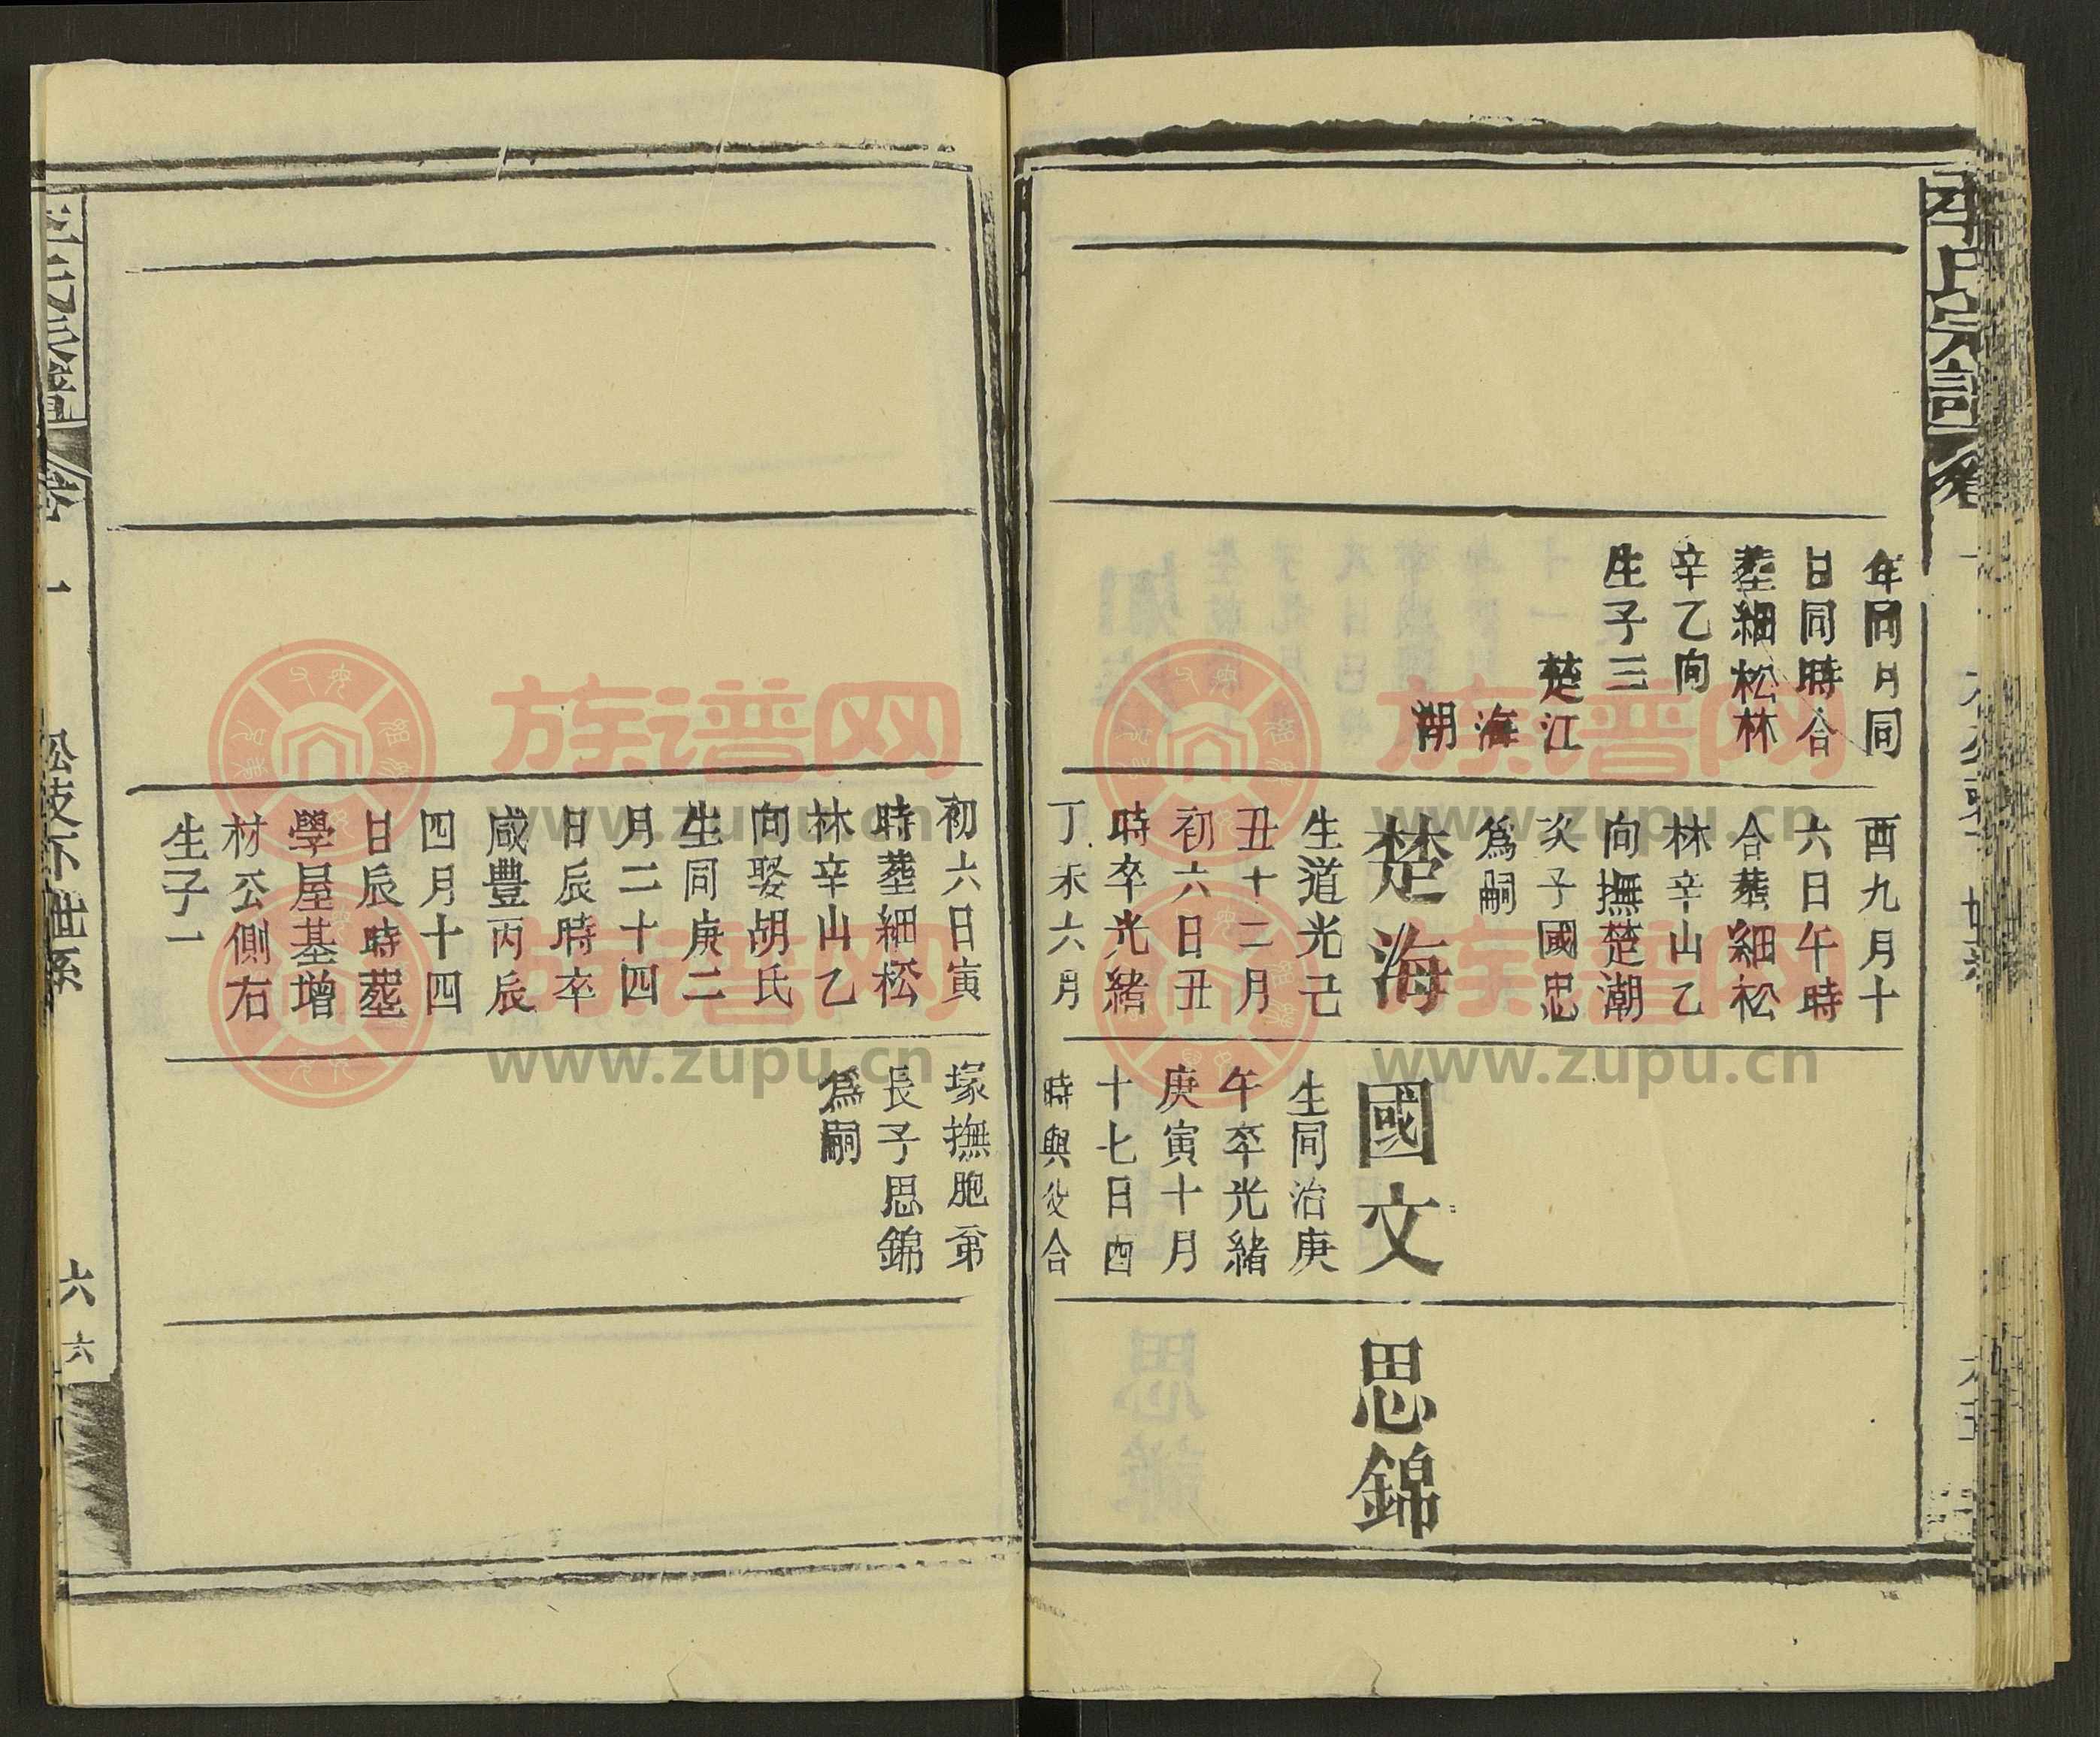 李氏宗譜
卷
一
年同月同
日同時合
塟細松林
辛乙向
生子三
楚江
海
湖
酉九月十
六日午時
合塟細松
林辛山乙
向撫楚潮
次子國忠
爲嗣
楚海
生道光己
丑十二月
初六日丑
時卒光緒
丁未六月
國文
生同治庚
午卒光緒
庚寅十月
十七日酉
時與父合
思錦
初六日寅
時塟細松
林辛山乙
向娶胡氏
生同庚二
月二十四
日辰時卒
咸豐丙辰
四月十四
日辰時塟
學屋基增
材公側右
生子一
塚撫胞弟
長子思錦
爲嗣
一
松枝下世系
六六
族谱网
www.zupu.cn
族谱网
www.zupu.cn
族谱网
www.zupu.cn
族谱网
www.zupu.cn